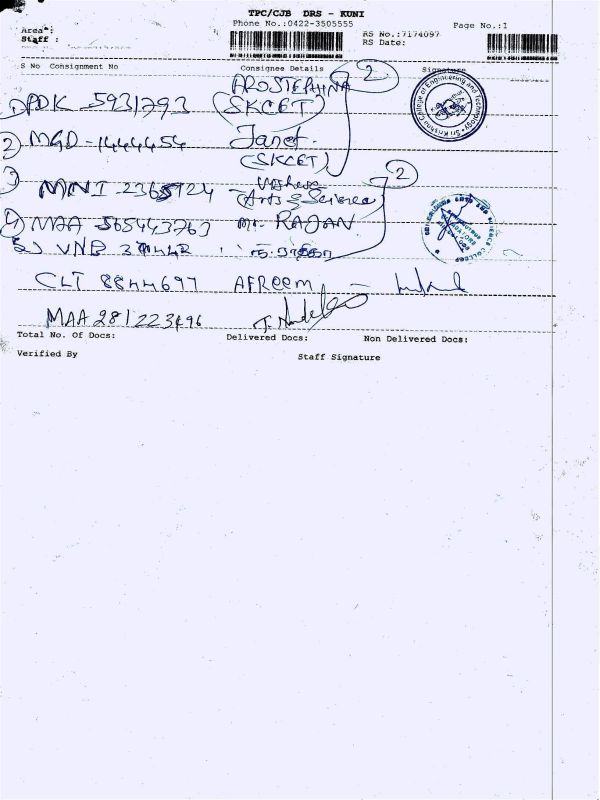 TPC/CJB DRS - KUNI
Phone No.:0422-3505555
Page No.:1
Area*:
Staff :
RS No.:7174097
RS Date:
S No Consignment No Consignee Details Signature
AROSTEPHINA 2
1) PDK 5931793 (SKCET)
Sri Krishna College of Engineering and Technology
2) MGD-1444454 Janet.
(SKCET)
2
3 MNI-2365924 (Arts & Science)
4) MAA 565443763 Mr. RAJAN
5) VNB
CLT 8844697 AFREEM
MAA 281223496
Total No. Of Docs: Delivered Docs: Non Delivered Docs:
Verified By Staff Signature